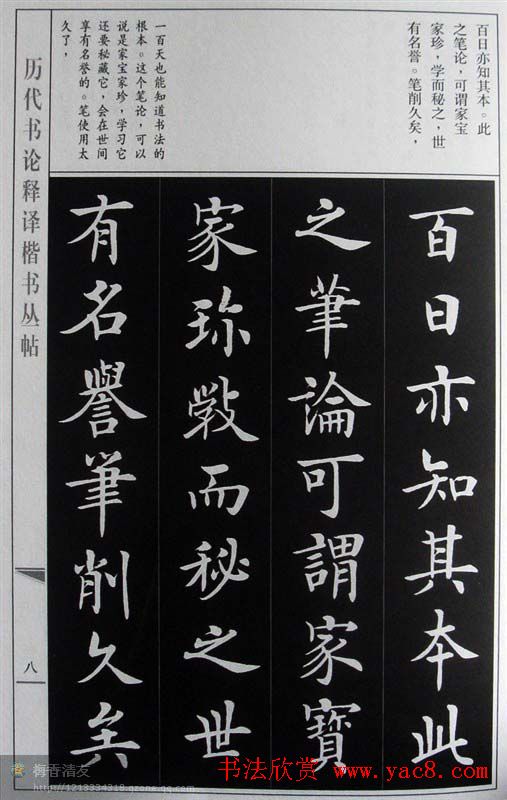 百日亦知其本。此
之笔论，可谓家宝
家珍，学而秘之，世
有名誉。笔削久矣，
一百天也能知道书法的
根本。这个笔论，可以
说是家宝家珍，学习它
还要秘藏它，会在世间
享有名誉的。笔使用太
久了，
百日亦知其本此
之筆論可謂家寶
家珎斆而秘之世
有名譽筆削久矣
历代书论释译楷书丛帖
八
梅香清友
http://1213334318.qzone.qq.com
书法欣赏 www.yac8.com